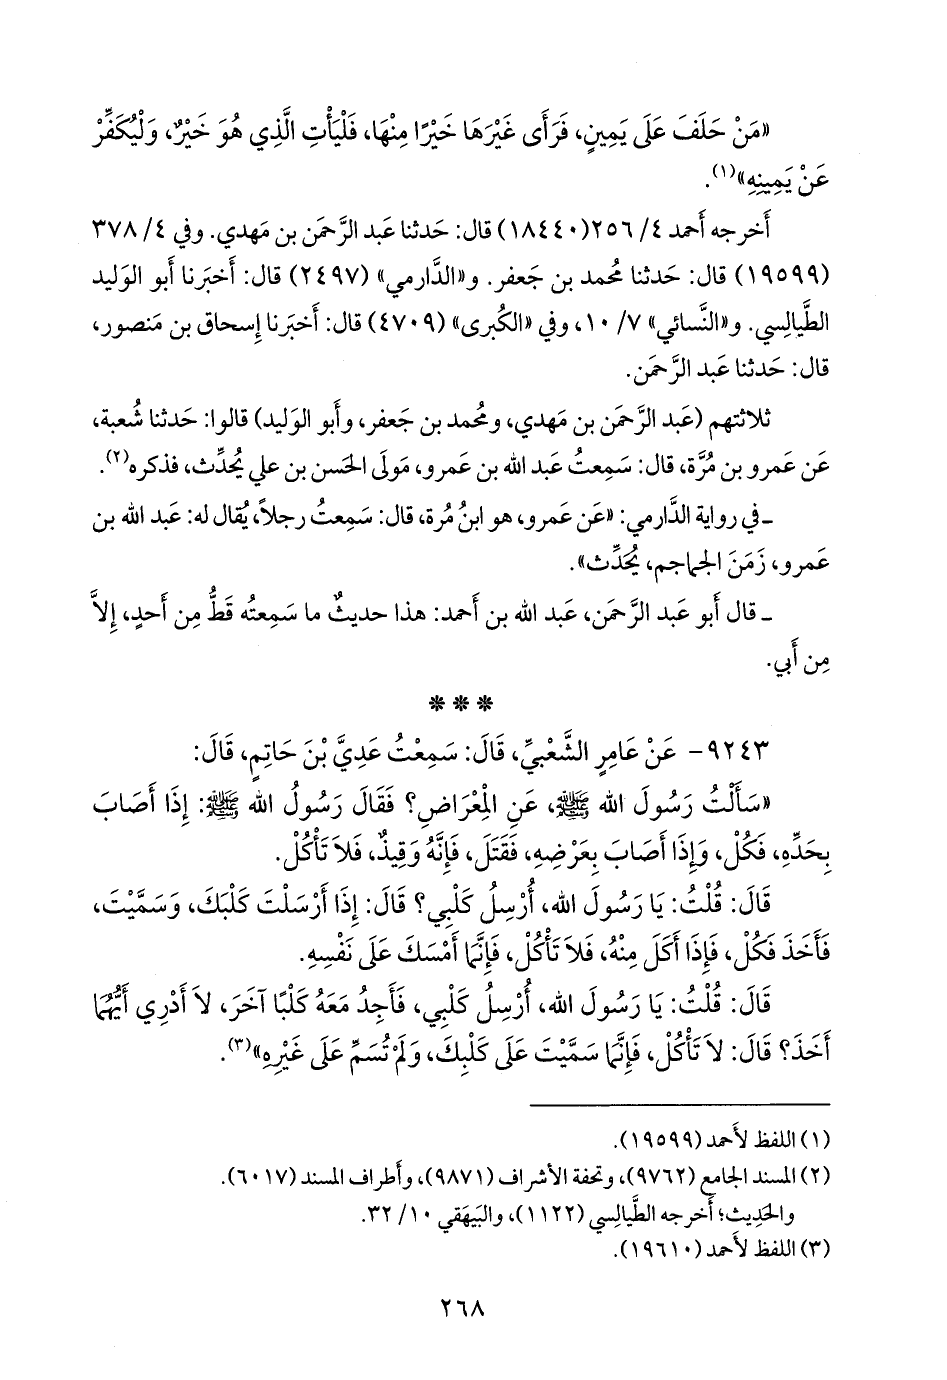 «مَنْ حَلَفَ عَلَى يَمِينٍ، فَرَأَى غَيْرَهَا خَيْرًا مِنْهَا، فَلْيَأْتِ الَّذِي هُوَ خَيْرٌ، وَلْيُكَفِّرْ
عَنْ يَمِينِهِ»(١).
أَخرجه أَحمد ٤/ ٢٥٦(١٨٤٤٠) قال: حَدثنا عَبد الرَّحمَن بن مَهدي. وفي ٤/ ٣٧٨
(١٩٥٩٩) قال: حَدثنا مُحمد بن جَعفر. و«الدَّارمي» (٢٤٩٧) قال: أَخبَرنا أَبو الوَليد
الطَّيالِسي. و«النَّسائي» ٧/ ١٠، وفي «الكُبرى» (٤٧٠٩) قال: أَخبَرنا إِسحاق بن مَنصور،
قال: حَدثنا عَبد الرَّحمَن.
ثلاثتهم (عَبد الرَّحمَن بن مَهدي، ومُحمد بن جَعفر، وأَبو الوَليد) قالوا: حَدثنا شُعبة،
عَن عَمرو بن مُرَّة، قال: سَمِعتُ عَبد الله بن عَمرو، مَولَى الحَسن بن علي يُحدِّث، فذكره(٢).
ـ في رواية الدَّارمي: «عَن عَمرو، هو ابنُ مُرة، قال: سَمِعتُ رجلاً، يُقال له: عَبد الله بن
عَمرو، زَمَنَ الجماجم، يُحَدِّث».
ـ قال أَبو عَبد الرَّحمَن، عَبد الله بن أَحمد: هذا حديثٌ ما سَمِعتُه قَطُّ مِن أَحدٍ، إِلاَّ
مِن أَبي.
* * *
٩٢٤٣- عَنْ عَامِرٍ الشَّعْبِيِّ، قَالَ: سَمِعْتُ عَدِيَّ بْنَ حَاتِمٍ، قَالَ:
«سَأَلْتُ رَسُولَ الله ﷺ، عَنِ الْمِعْرَاضِ؟ فَقَالَ رَسُولُ الله ﷺ: إِذَا أَصَابَ
بِحَدِّهِ، فَكُلْ، وَإِذَا أَصَابَ بِعَرْضِهِ، فَقَتَلَ، فَإِنَّهُ وَقِيذٌ، فَلاَ تَأْكُلْ.
قَالَ: قُلْتُ: يَا رَسُولَ الله، أُرْسِلُ كَلْبِي؟ قَالَ: إِذَا أَرْسَلْتَ كَلْبَكَ، وَسَمَّيْتَ،
فَأَخَذَ فَكُلْ، فَإِذَا أَكَلَ مِنْهُ، فَلاَ تَأْكُلْ، فَإِنَّمَا أَمْسَكَ عَلَى نَفْسِهِ.
قَالَ: قُلْتُ: يَا رَسُولَ الله، أُرْسِلُ كَلْبِي، فَأَجِدُ مَعَهُ كَلْبًا آخَرَ، لاَ أَدْرِي أَيُّهُمَا
أَخَذَ؟ قَالَ: لاَ تَأْكُلْ، فَإِنَّمَا سَمَّيْتَ عَلَى كَلْبِكَ، وَلَمْ تُسَمِّ عَلَى غَيْرِهِ»(٣).
(١) اللفظ لأَحمد (١٩٥٩٩).
(٢) المسند الجامع (٩٧٦٢)، وتحفة الأشراف (٩٨٧١)، وأَطراف المسند (٦٠١٧).
والحَدِيث؛ أَخرجه الطَّيالِسي (١١٢٢)، والبَيهَقي ١٠/ ٣٢.
(٣) اللفظ لأَحمد (١٩٦١٠).
٢٦٨